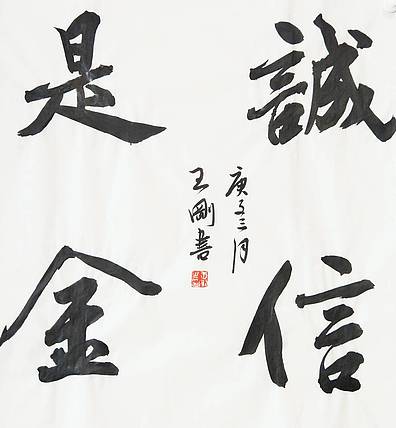 誠信
是金
庚子三月
王剛書